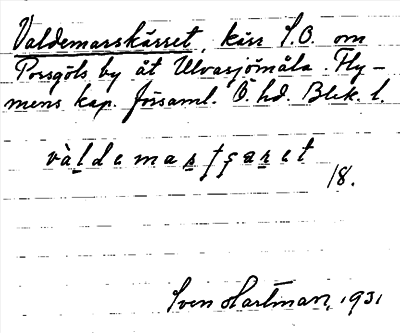 Valdemarskärret, kärr S.O. om
Porsgöls by åt Ulvasjömåla. Fly-
mens kap. församl. Ö. hd. Blek. l.
vàldemasʃçæret
18.
Sven Hartman, 1931